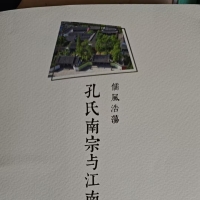 儒風浩蕩
孔氏南宗与江南